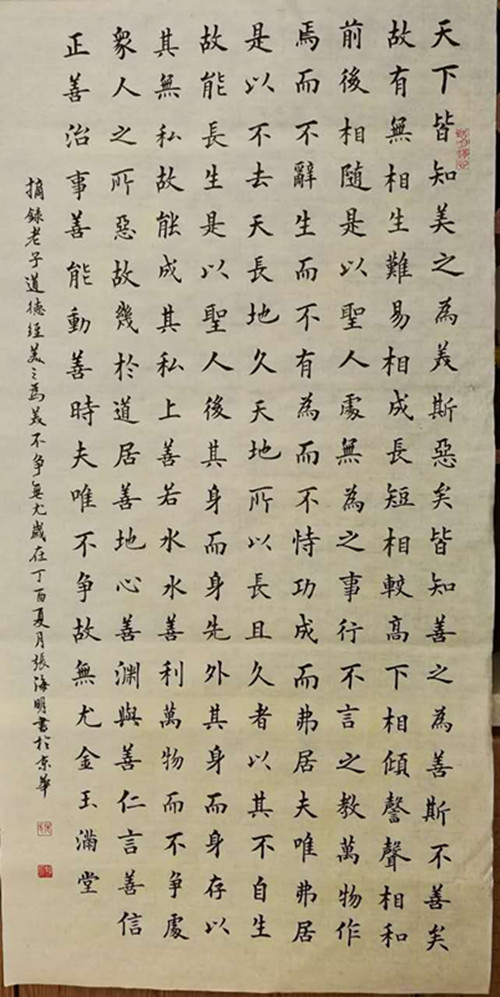 天下皆知美之為美斯惡矣皆知善之為善斯不善矣
故有無相生難易相成長短相較高下相傾謦聲相和
前後相隨是以聖人處無為之事行不言之教萬物作
焉而不辭生而不有為而不恃功成而弗居夫唯弗居
是以不去天長地久天地所以長且久者以其不自生
故能長生是以聖人後其身而身先外其身而身存以
其無私故能成其私上善若水水善利萬物而不争處
衆人之所惡故幾於道居善地心善淵與善仁言善信
正善治事善能動善時夫唯不争故無尤金玉滿堂
摘錄老子道德經美々為美不争無尤歲在丁酉夏月張海明書於京華